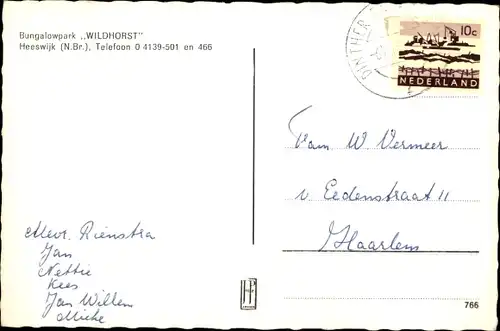 Bungalowpark „WILDHORST"
Heeswijk (N.Br.), Telefoon 0 4139-501 en 466
DINTHER
10c
NEDERLAND
Fam. W. Vermeer
v. Eedenstraat 11
Haarlem
Mevr. Rienstra
Jan
Nettie
Kees
Jan Willem
Mieke
766